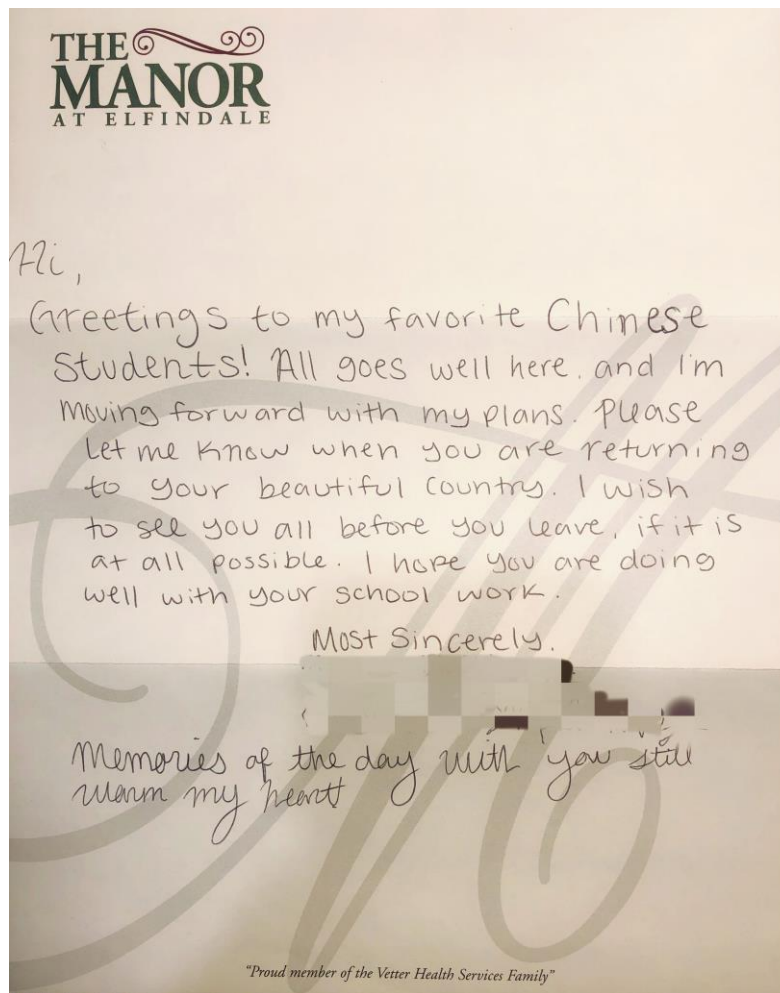 THE
MANOR
AT ELFINDALE
Hi,
Greetings to my favorite Chinese
Students! All goes well here. and I'm
moving forward with my plans. Please
Let me know when you are returning
to your beautiful country. I wish
to see you all before you leave, if it is
at all possible. I hope you are doing
well with your school work.
Most Sincerely.
Memories of the day with you still
warm my heart
"Proud member of the Vetter Health Services Family"